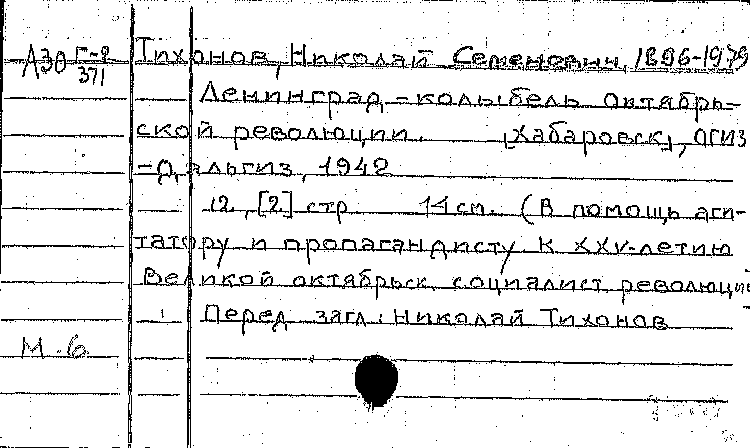 А30 Г-2/371 Тихонов, Николай Семенович, 1896-1979
Ленинград - колыбель Октябрь-
ской революции. [Хабаровск], ОГИЗ
- Дальгиз, 1942
12, [2] стр 14 см. (В помощь аги-
татору и пропагандисту к XXV-летию
Великой октябрьск. социалист. революции
Перед загл.: Николай Тихонов
М.б.